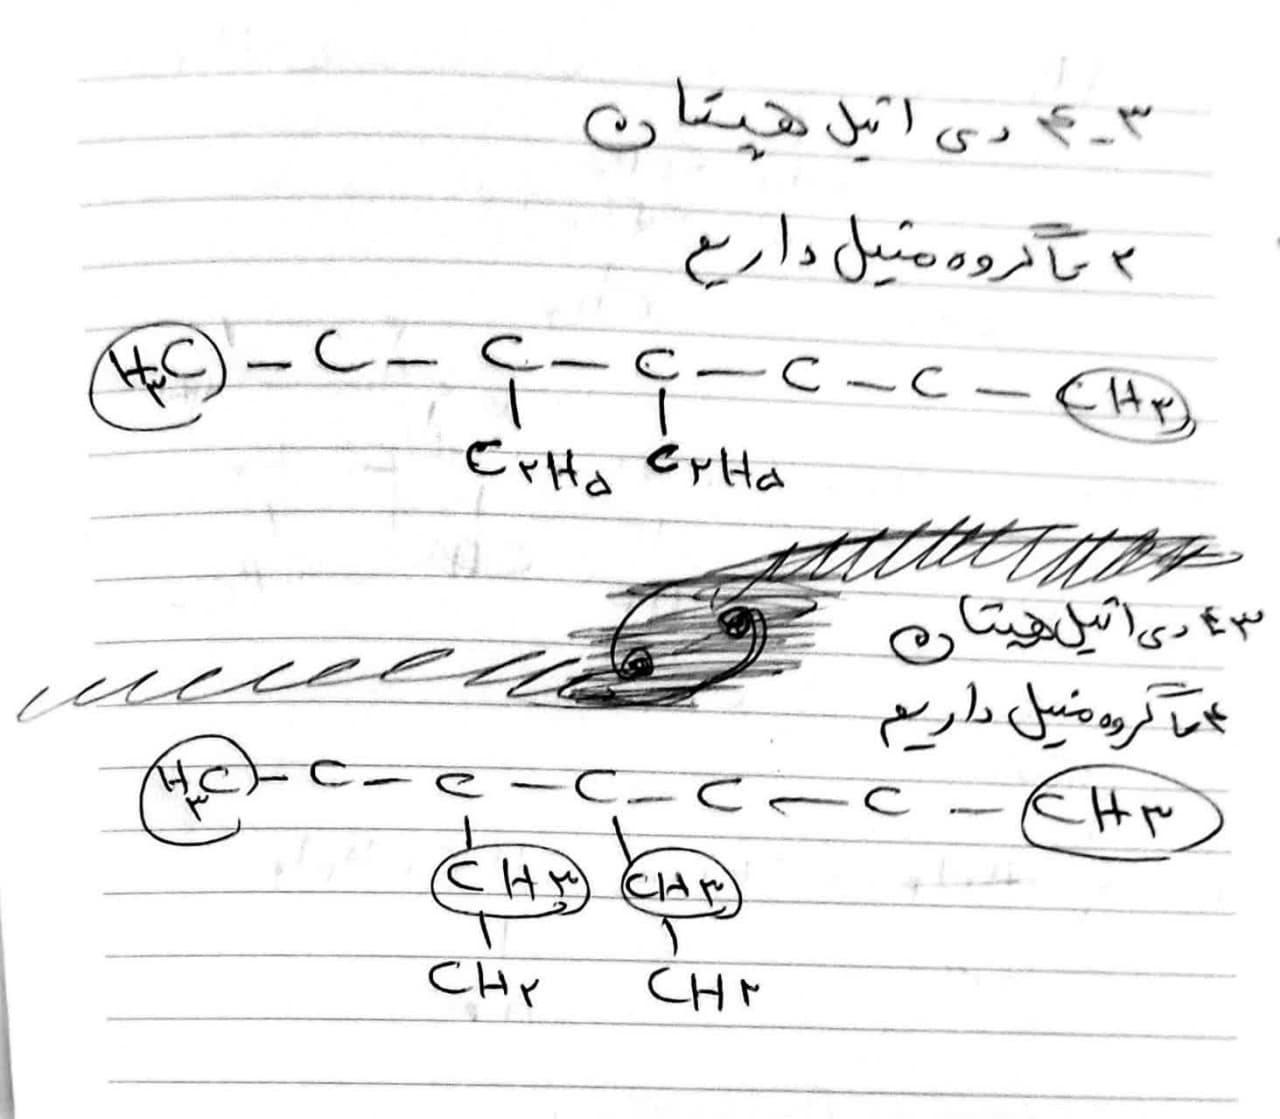 ۳-۴ دی اتیل هپتان
۲ تا گروه متیل داریم
H۳C - C - C - C - C - C - CH۳
C۲H۵ C۲H۵
۳-۴ دی اتیل هپتان
۴ تا گروه متیل داریم
H۳C - C - C - C - C - C - CH۳
CH۳ CH۳
CH۲ CH۲